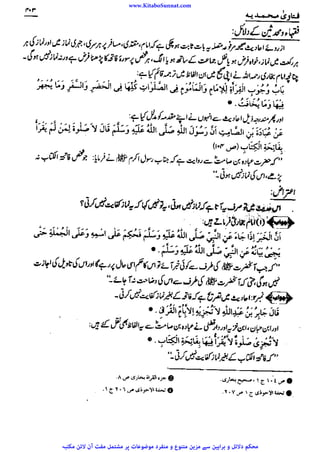 www.KitaboSunnat.com
فتاویٰ محمدیہ
۳۰۳
فقہاء ومحدثین کے دلائل:
ازروئے احادیث صحیحہ مرفوعہ متصلہ یہ بات ثابت ہو چکی ہے کہ امام، مقتدی، مسافر پر ہر سری، جہری نماز میں اور نماز کی ہر
ہر رکعت میں نماز، خواہ فرض ہو یا نفل جماعت کے ساتھ ہو یا الگ، ہر شخص پر سورۃ فاتحہ کا پڑھنا فرض ہے ورنہ نماز نہیں ہو گی۔
چنانچہ امام بخاری رحمہ اللہ نے اپنی صحیح میں ان الفاظ میں ترجمہ قائم کیا ہے:
بَابُ وُجُوْبِ الْقِرَاءَةِ لِلْإِمَامِ وَالْمَأْمُوْمِ فِی الصَّلَوَاتِ كُلِّهَا فِی الْحَضَرِ وَالسَّفَرِ وَمَا يُجْهَرُ
فِيْهَا وَمَا يُخَافَتُ.
اور پھر مندرجہ ذیل احادیث سے انہوں نے اپنے مقدمہ کو مدلل کیا ہے:
عَنْ عُبَادَةَ بْنِ الصَّامِتِ أَنَّ رَسُوْلَ اللّٰهِ صَلَّی اللّٰهُ عَلَيْهِ وَسَلَّمَ قَالَ لَا صَلٰوةَ لِمَنْ لَّمْ يَقْرَأْ
بِفَاتِحَةِ الْكِتَابِ (ص ۱۰۴)
”کہ حضرت عبادہ بن صامت سے روایت ہے کہ جناب رسول اکرم ﷺ نے فرمایا: جو شخص فاتحۃ الکتاب نہ
پڑھے، اس کی نماز نہیں ہوتی۔“
اعتراض:
اس حدیث میں تو صرف یہ آتا ہے کہ نماز نہیں ہوتی، یہ تو نہیں کہا کہ یہ نماز کفایت نہیں کرتی؟
جواب (۱) امام بخاری فرماتے ہیں:
أَنَّ الْخَبَرَ إِذَا جَاءَ عَنِ النَّبِیِّ صَلَّی اللّٰهُ عَلَيْهِ وَسَلَّمَ فَحُكِمَ عَلَی اسْمِهِ وَعَلَی الْجُمْلَةِ حَتّٰی
يَجِیْءَ بَيَانُهُ عَنِ النَّبِیِّ صَلَّی اللّٰهُ عَلَيْهِ وَسَلَّمَ.
”کہ جب آنحضرت ﷺ کی طرف سے کوئی خبر آئے تو اس کا حکم اسی حال پر رہے گا اور اس کی تاویل کی اجازت
نہیں ہو گی حتی کہ آنحضرت ﷺ کی طرف سے اس کی وضاحت نہ آ جائے۔“
جواب نمبر۲: احادیث میں تصریح ہے کہ فاتحہ کے بغیر نماز کفایت نہیں کرتی۔
قَالَ جَابِرُ بْنُ عَبْدِاللّٰهِ لَا تُجْزِيْهِ إِلَّا بِأُمِّ الْقُرْآنِ.
اور ابن حبان، ابن خزیمہ اور دارقطنی نے عبادہ بن صامت سے یہ الفاظ بھی نقل کئے ہیں:
لَا تُجْزِیْ صَلٰوةٌ لَا يُقْرَأُ فِيْهَا بِفَاتِحَةِ الْكِتَابِ.
”کہ فاتحۃ الکتاب کے بغیر نماز کفایت نہیں کرتی۔“
ص ۱۰۴ ج ۱، صحیح بخاری.
جزء القراة بخاری ص ۸.
تحفة الاحوذی ج ۱ ص ۲۰۷.
تحفة الاحوذی ص ۲۰۶ ج ۱.
محکم دلائل و براہین سے مزین متنوع و منفرد موضوعات پر مشتمل مفت آن لائن مکتبہ